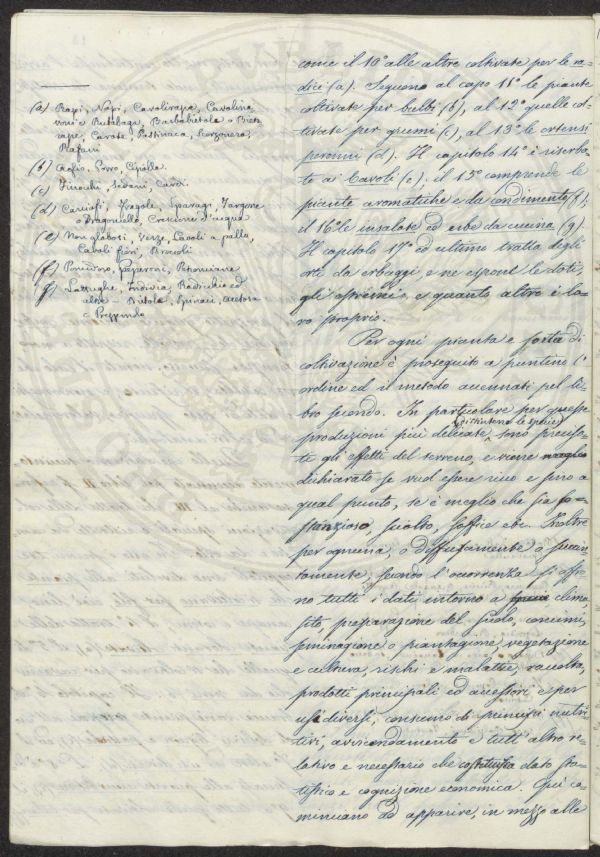 (a) Rapi, Napi, Cavolirapa, Cavolina
voni e Rutabaga, Barbabietola o Bieta
rape, Carote, Pastinaca, Scorzonera,
Rafani
(b) Aglio, Porro, Cipolla.
(c) Finocchi, Sedani, Cardi.
(d) Carciofi, Fragole, Sparagi, Targone
o Dragoncello, Crescione d'acqua
(e) Non globosi, Verze, Cavoli a palla,
Cavoli fiori, Broccoli
(f) Pomidoro, Peperoni, Petonciane
(g) Lattughe, Indivia, Radicchio ed
altre – Bietola, Spinaci, Acetosa
e Prezzemolo
come il 10° alle altre coltivate per le ra-
dici (a). Seguono al capo 11° le piante
coltivate per bulbi (b), al 12° quelle col-
tivate per (c), al 13° le ortensi
perenni (d). Il capitolo 14° è riserba-
to ai Cavoli (e). il 15° comprende le
piante aromatiche e da condimento (f);
il 16° le insalate ed erbe da cucina (g).
Il capitolo 17° ed ultimo tratta degli
orti da erbaggi, e ne espone le doti,
gli, e quanto altro è lo-
ro proprio.
Per ogni pianta e sorta di
coltivazione è proseguito a puntino l'
ordine ed il metodo accennati pel li-
bro secondo. In particolare per queste
produzioni più delicate, sono precisa-
te gli effetti del terreno, e viene
dichiarato se vuol essere ricco e fino a
qual punto, se è meglio che sia so-
stanzioso, sciolto, soffice etc. Inoltre
per ognuna, o diffusamente o succin-
tamente, secondo l'occorrenza si offro-
no tutti i dati intorno a clima,
sito, preparazione del suolo, concimi,
seminagione o piantagione, vegetazione
e cultura, rischi e malattie, raccolta,
prodotti principali ed accessori e per
usi diversi, consumo di principi nutri-
tivi, avvicendamento e tutt'altro re-
lativo e necessario che costituisca dato sta-
tistico e cognizione economica. Qui co-
minciano ad apparire, in mezzo alle